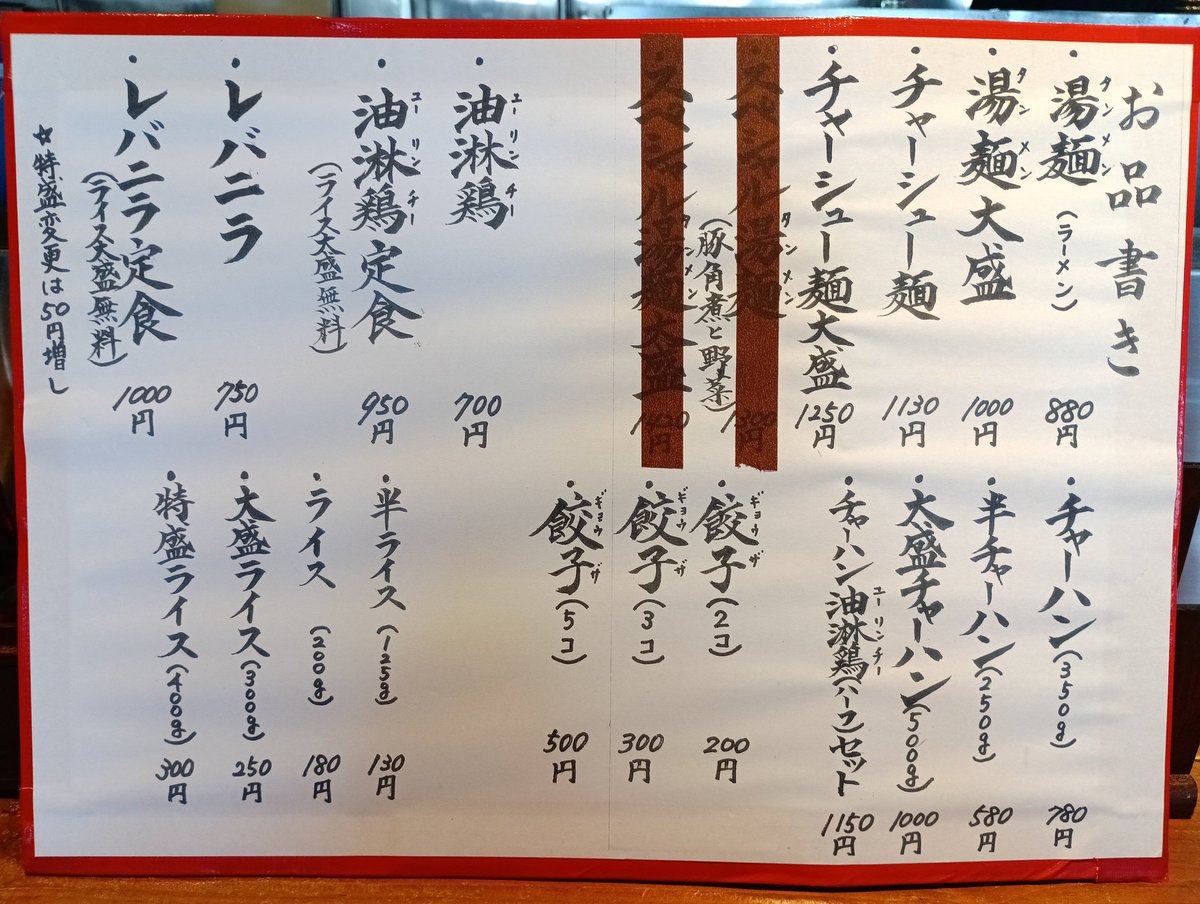 お品書き
・湯麺 タンメン (ラーメン) 880円
・湯麺大盛 タンメン 1000円
・チャーシュー麺 1130円
・チャーシュー麺大盛 1250円
・スペシャル湯麺 タンメン
(豚角煮と野菜)
・スペシャル湯麺大盛 タンメン
・油淋鶏 ユーリンチー 700円
・油淋鶏定食 ユーリンチー 950円
(ライス大盛無料)
・レバニラ 750円
・レバニラ定食 1000円
(ライス大盛無料)
☆特盛変更は50円増し
・チャーハン(350g) 780円
・半チャーハン(250g) 580円
・大盛チャーハン(500g) 1000円
・チャーハン油淋鶏(ハーフ)セット ユーリンチー 1150円
・餃子(2コ) ギョウザ 200円
・餃子(3コ) ギョウザ 300円
・餃子(5コ) ギョウザ 500円
・半ライス(125g) 130円
・ライス(200g) 180円
・大盛ライス(300g) 250円
・特盛ライス(400g) 300円